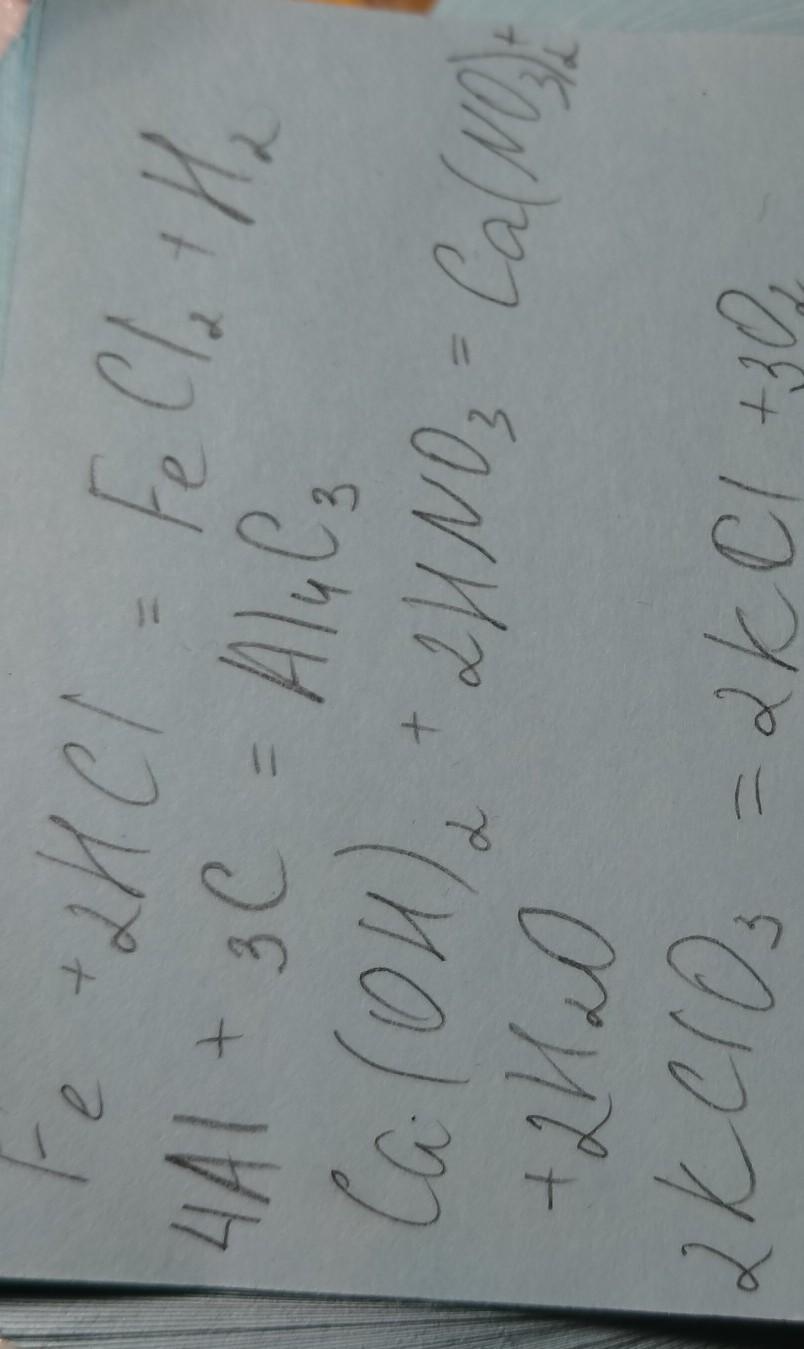 Fe + 2HCl = FeCl₂ + H₂
4Al + 3C = Al₄C₃
Ca(OH)₂ + 2HNO₃ = Ca(NO₃)₂ +
+ 2H₂O
2KClO₃ = 2KCl + 3O₂